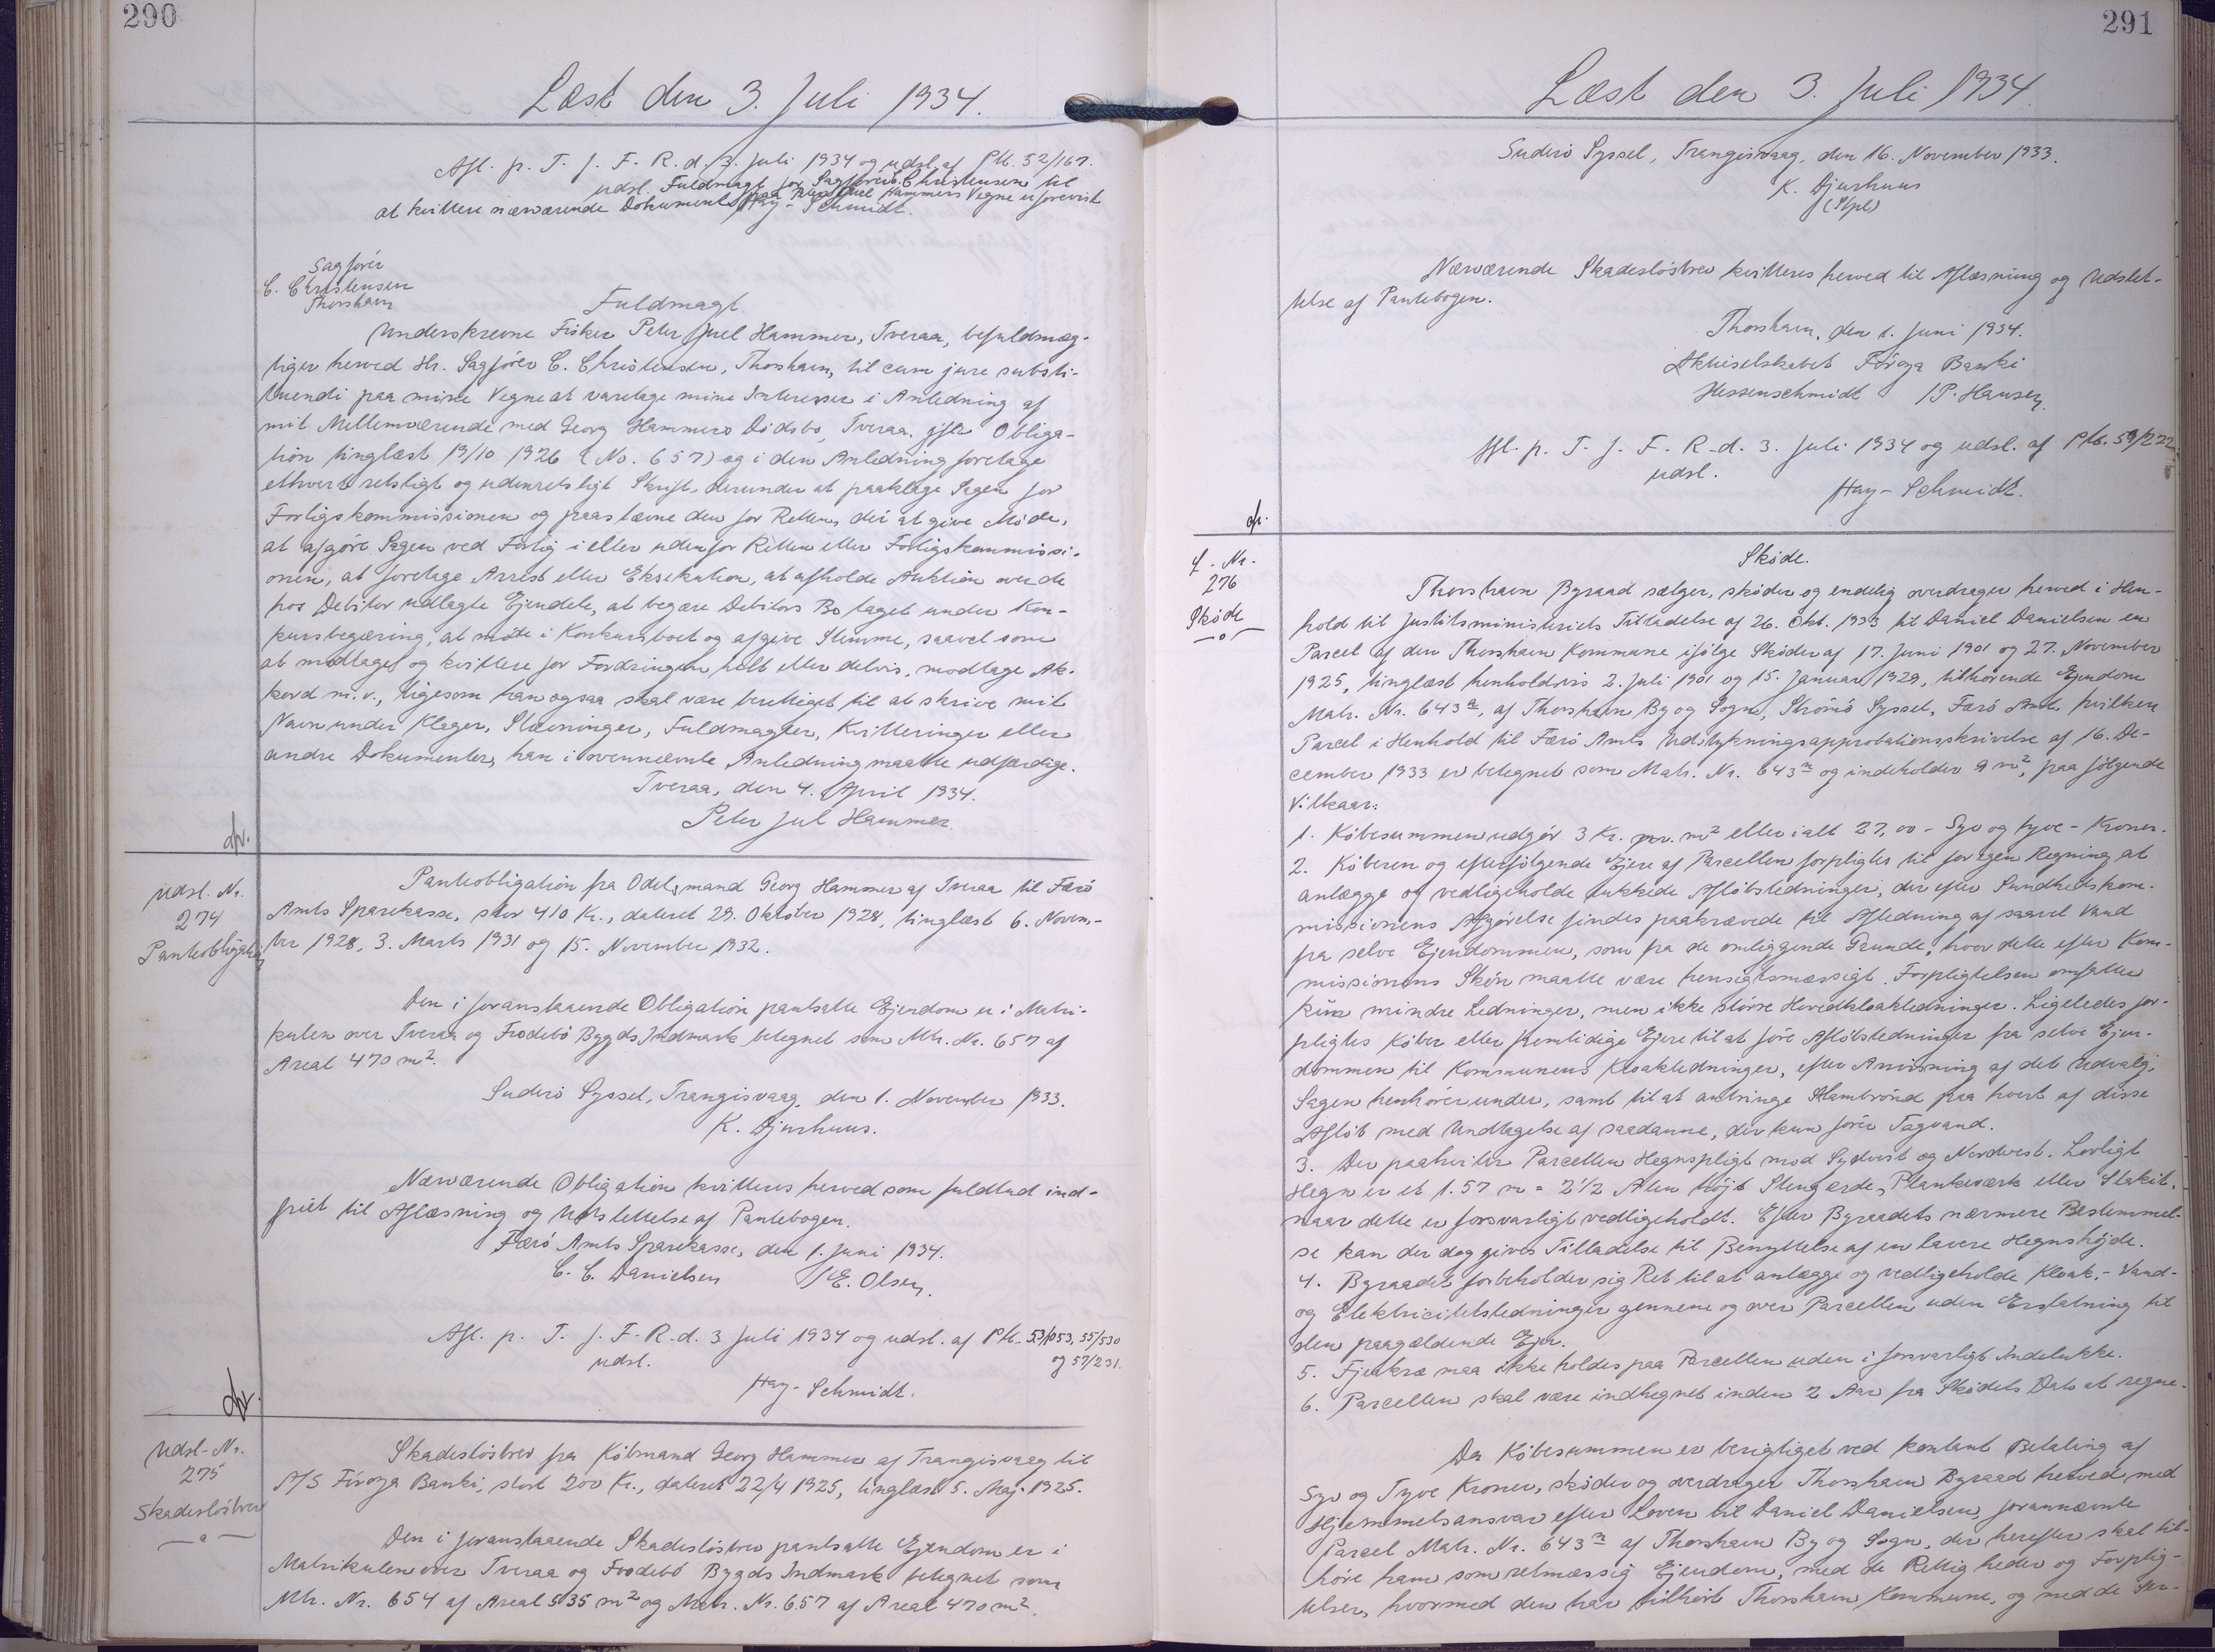 290
Læst den 3. Juli 1934.
Afl. p. T. f. F. R. d. 3. Juli 1934 og udsl. af Ptb. 52/167.
udsl. Fuldmagt for Sagförer C. Christensen til
at kvittere nærværende Dokument paa Peter Juel Hammers Vegne er forevist
Hay-Schmidt.
Sagförer
C. Christensen
Thorshavn
Fuldmagt.
Underskrevne Fisker Peter Juel Hammer, Tveraa, befuldmæg-
tiger herved Hr. Sagförer C. Christensen, Thorshavn, til cum jure substi-
tuendi paa mine Vegne at varetage mine Interesser i Anledning af
mit Mellemværende med Georg Hammers Dödsbo, Tveraa. gflr Obliga-
tion tinglæst 19/10 1926 (No. 657) og i den Anledning foretage
ethvert retsligt og udenretsligt Skrift, derunder at paaklage Sagen for
Forligskommissionen og paastævne den for Retten, der at give Möde,
at afgöre Sagen ved Forlig i eller udenfor Retten eller Forligskommissi-
onen, at foretage Arrest eller Eksekution, at afholde Auktion over de
hos Debitor udlagte Ejendele, at begære Debitors Bo taget under Kon-
kursbegæring, at möte i Konkursboet og afgive Stemme, saavel som
at modtage og kvittere for Fordringen helt eller delvis, modtage Ak-
kord m.v., ligesom han ogsaa skal være berettiget til at skrive mit
Navn under Klager, Stævninger, Fuldmagter, Kvitteringer eller
andre Dokumenter, han i ovennævnte Anledning maatte udfærdige.
Tveraa, den 4. April 1934.
Peter Jul Hammer.
Udsl. Nr.
274
Panteobligation
Panteobligation fra Odelsmand Georg Hammer af Tveraa til Færö
Amts Sparekasse, stor 410 Kr., dateret 29. Oktober 1928, tinglæst 6. Novem-
ber 1928, 3. Marts 1931 og 15. November 1932.
Den i foranstaaende Obligation pantsatte Ejendom er i Matri-
kulen over Tveraa og Frodebö Bygds Indmark betegnet som Mtr. Nr. 657 af
Areal 470 m².
Suderö Syssel, Trangisvaag, den 1. November 1933.
K. Djurhuus.
Nærværende Obligation kvitteres herved som fuldtud ind-
friet til Aflæsning og Udslettelse af Pantebogen.
Færö Amts Sparekasse, den 1. Juni 1934.
C. C. Danielsen /E. Olsen.
Afl. p. T. f. F. R. d. 3 Juli 1934 og udsl. af Ptb. 53/1053, 55/530
udsl. og 57/231.
Hay-Schmidt.
Udsl-Nr.
275
Skadeslösbrev
Skadeslösbrev fra Köbmand Georg Hammer af Trangisvaag til
A/S Föroya Banki, stort 200 Kr., dateret 22/4 1925, tinglæst 5. Maj 1925.
Den i foranstaaende Skadeslösbrev pantsatte Ejendom er i
Matrikulen over Tveraa og Frodebö Bygds Indmark betegnet som
Mtr. Nr. 654 af Areal 535 m² og Matr. Nr. 657 af Areal 470 m².
291
Læst den 3. Juli 1934.
Suderö Syssel, Trangisvaag, den 16. November 1933.
K. Djurhuus
Nærværende Skadeslösbrev kvitteres herved til Aflæsning og Udslet-
telse af Pantebogen.
Thorshavn, den 1. Juni 1934.
Aktieselskabet Föroya Banki
Hessenschmidt /P. Hansen
Afl. p. T. f. F. R. d. 3. Juli 1934 og udsl. af Ptb. 59/222
udsl.
Hay-Schmidt.
L. Nr.
276
Sköde
Sköde.
Thorshavn Byraad sælger, sköder og endelig overdrager herved i Hen-
hold til Justitsministeriets Tilladelse af 26. Okt. 1933 til Daniel Danielsen en
Parcel af den Thorshavn Kommune ifölge Sköder af 17. Juni 1901 og 27. November
1925, tinglæst henholdsvis 2. Juli 1901 og 15. Januar 1929, tilhörende Ejendom
Matr. Nr. 643ª, af Thorshavn By og Sogn, Strömö Syssel, Færö Amt, hvilken
Parcel i Henhold til Færö Amts Udstykningsapprobationsskrivelse af 16. De-
cember 1933 er betegnet som Matr. Nr. 643ᵐ og indeholder 9 m², paa fölgende
Vilkaar:
1. Köbesummen udgör 3 Kr. pr. m² eller ialt 27,00 - Syv og tyve - Kroner.
2. Köberen og efterfölgende Ejere af Parcellen forpligtes til for egen Regning at
anlægge og vedligeholde lukkede Aflöbsledninger, der efter Sundhedskom-
missionens Afgörelse findes paakrævede til Afledning af saavel Vand
fra selve Ejendommen, som fra de omliggende Grunde, hvor dette efter Kom-
missionens Skön maatte være hensigtsmæssigt. Forpligtelsen omfatter
kun mindre Ledninger, men ikke större Hovedkloakledninger. Ligeledes for-
pligtes Köber eller fremtidige Ejere til at före Aflöbsledninger fra selve Ejen-
dommen til Kommunens Kloakledninger, efter Anvisning af det Udvalg,
Sagen henhörer under, samt til at anbringe Slambrönd paa hvert af disse
Aflöb med Undtagelse af saadanne, der kun förer Tagvand.
3. Der paahviler Parcellen Hegnspligt mod Sydvest og Nordvest. Lovligt
Hegn er et 1.57 m = 2½ Alen höjt Stengærde, Plankeværk eller Stakit,
naar dette er forsvarligt vedligeholdt. Efter Byraadets nærmere Bestemmel-
se kan der dog gives Tilladelse til Benyttelse af en lavere Hegnshöjde.
4. Byraadet forbeholder sig Ret til at anlægge og vedligeholde Kloak,- Vand-
og Elektricitetsledninger gennem og over Parcellen uden Erstatning til
den paagældende Ejer.
5. Fjerkræ maa ikke holdes paa Parcellen uden i forsvarligt Indelukke.
6. Parcellen skal være indhegnet inden 2 Aar fra Sködets Dato at regne.
Da Köbesummen er berigtiget ved kontant Betaling af
Syv og Tyve Kroner, sköder og overdrager Thorshavn Byraad herved med
Hjemmelsansvar efter Loven til Daniel Danielsen, forannævnte
Parcel Matr. Nr. 643ᵐ af Thorshavn By og Sogn, der herefter skal til-
höre ham som retmæssig Ejendom, med de Rettigheder og Forplig-
telser, hvormed den har tilhört Thorshavn Kommune, og med de Ser-